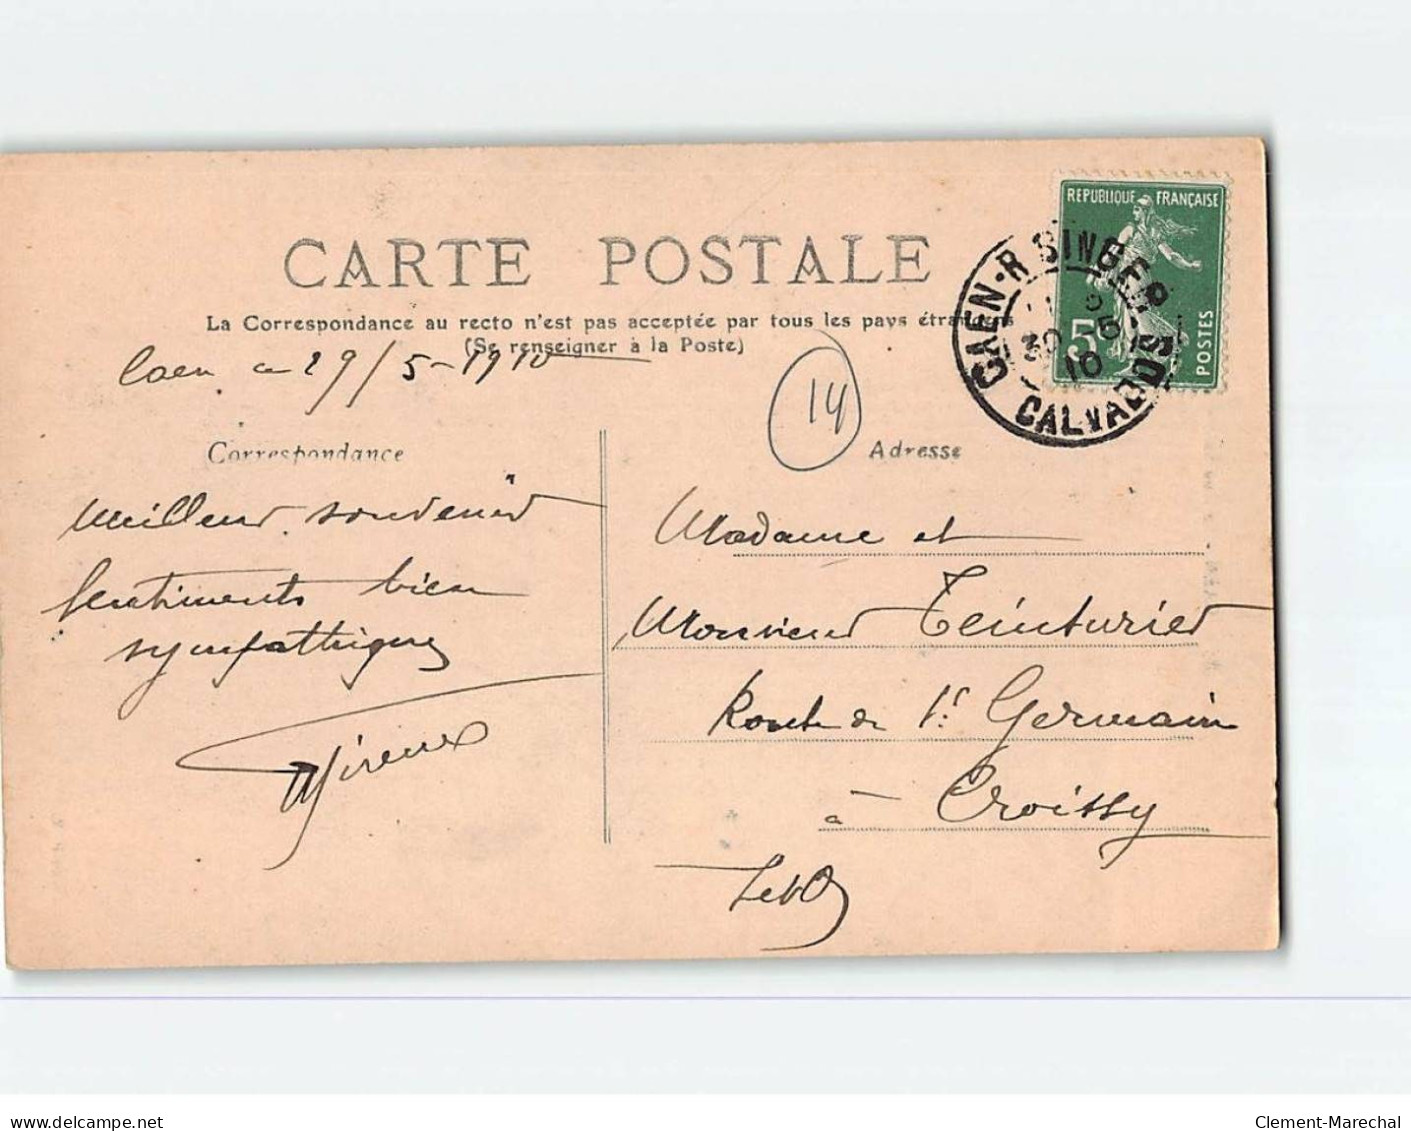 CARTE POSTALE
La Correspondance au recto n'est pas acceptée par tous les pays étrangers
(Se renseigner à la Poste)
REPUBLIQUE FRANÇAISE
5c
POSTES
CAEN-R SINGER
30 5
10
CALVADOS
Caen ce 29/5-1910
14
Correspondance
Adresse
Meilleur souvenir
Sentiments bien
sympathiques
Madame et
Monsieur Teinturier
Route de St Germain
à Croissy
S et O
www.delcampe.net
Clement-Marechal